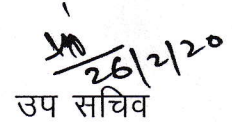 26/2/20
उप सचिव